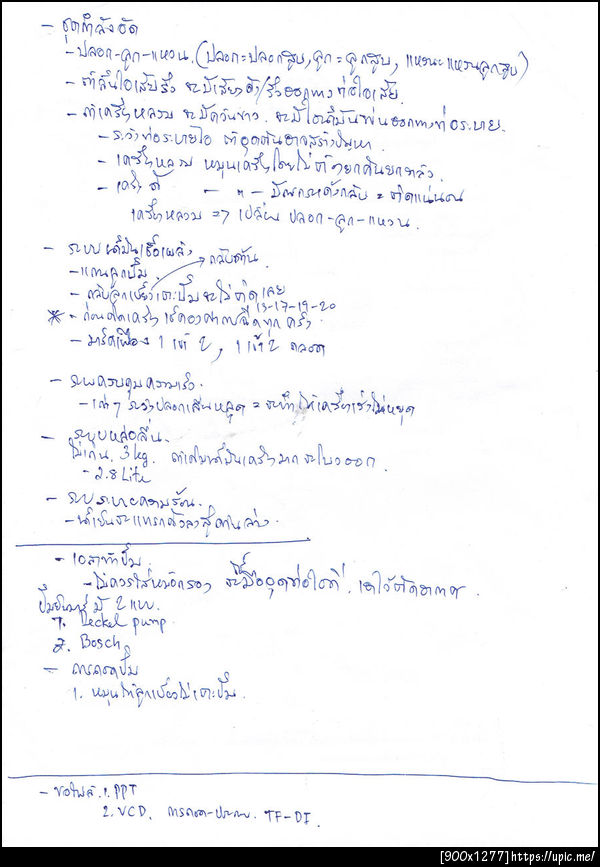 - ชุดกำลังอัด
- ปลอก-ลูก-แหวน. (ปลอก=ปลอกสูบ, ลูก = ลูกสูบ, แหวน=แหวนลูกสูบ)
- ถ้าลิ้นไอเสียรั่ว จะมีเสียงดัง/รั่วออกทางท่อไอเสีย.
- ถ้าเครื่องหลวม จะมีควันขาว. จะมีไอน้ำมันพ่นออกทางท่อระบาย.
- ระวังท่อระบายไอ ถ้าอุดตันอาจสร้างปัญหา.
- เครื่องหลวม หมุนเครื่องโดยไม่ต้องยกคันยกวาล์ว
- เครื่องดี - " -
เครื่องหลวม => เปลี่ยน ปลอก-ลูก-แหวน.
- ระบบน้ำมันเชื้อเพลิง
กลับด้าน.
- แกนลูกปั๊ม.
- กลับลูกเบี้ยวเตะปั๊ม จะไม่ติดเลย
15-17-19-20
* - ก่อนติดเครื่อง เช็คองศาการฉีดทุกครั้ง
- มาร์คเฟือง 1 เข้า 2, 1 เข้า 2 ตลอด
- ระบบควบคุมความเร็ว.
- เก่าๆ ระวังปลอกเสื้อหลุด = จะทำให้เครื่องเร่งไม่หยุด
- ระบบหล่อลื่น.
ไม่เกิน. 3 kg. ถ้าเติมน้ำมันเครื่องมากจะไหลออก.
- 2.8 Lite
- ระบบระบายความร้อน.
- น้ำเย็นจะแทรกตัวลงสู่ด้านล่าง
- เอสาทำปั๊ม
- ไม่ควรใส่หม้อกรอง
ปั๊มยันมาร์ มี 2 แบบ.
1. Deckel pump
2. Bosch
- การถอดปั๊ม
1. หมุนให้ลูกเบี้ยวไม่เตะปั๊ม.
- ขอไฟล์. 1. PPT
2. VCD. การถอด-ประกอบ. TF-DI.
[900x1277]https://upic.me/